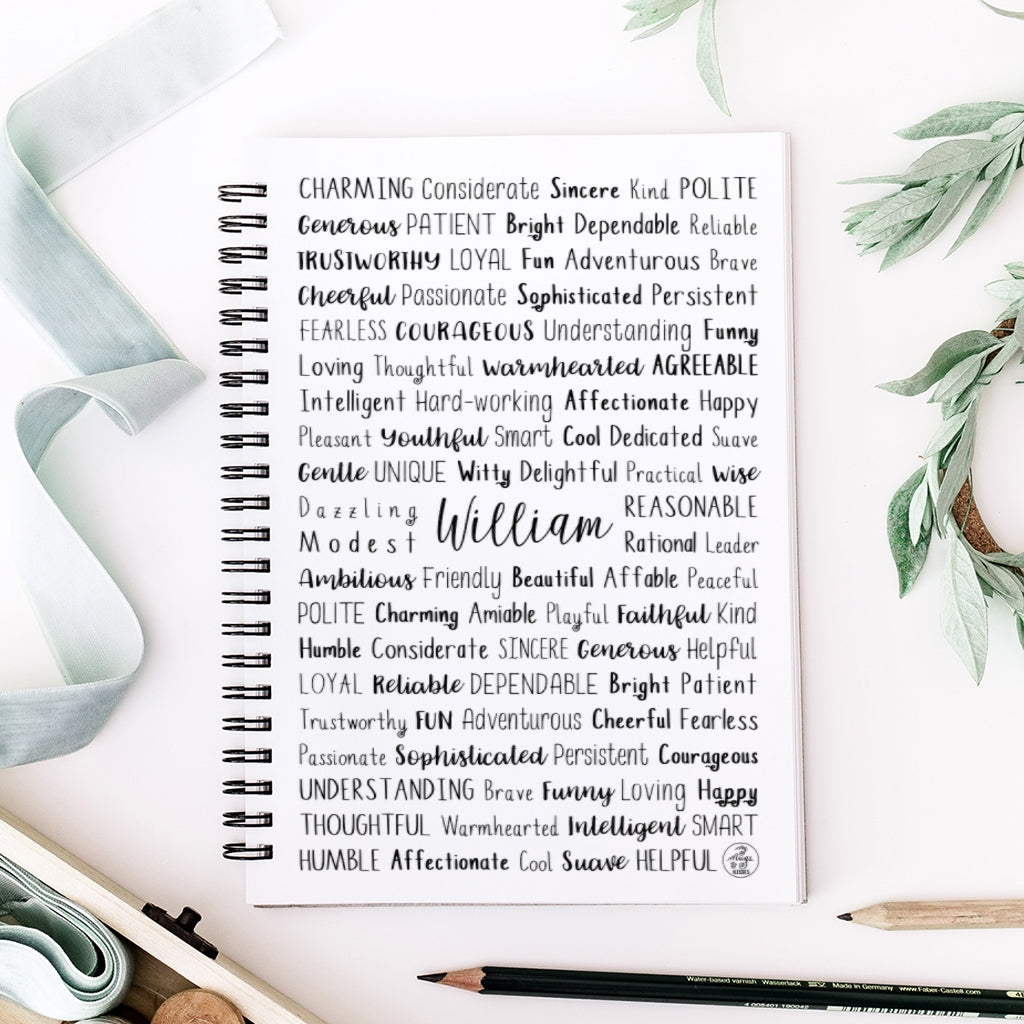 CHARMING Considerate Sincere Kind POLITE
Generous PATIENT Bright Dependable Reliable
TRUSTWORTHY LOYAL Fun Adventurous Brave
Cheerful Passionate Sophisticated Persistent
FEARLESS COURAGEOUS Understanding Funny
Loving Thoughtful Warmhearted AGREEABLE
Intelligent Hard-working Affectionate Happy
Pleasant Youthful Smart Cool Dedicated Suave
Gentle UNIQUE Witty Delightful Practical Wise
Dazzling
Modest
William
REASONABLE
Rational Leader
Ambitious Friendly Beautiful Affable Peaceful
POLITE Charming Amiable Playful Faithful Kind
Humble Considerate SINCERE Generous Helpful
LOYAL Reliable DEPENDABLE Bright Patient
Trustworthy FUN Adventurous Cheerful Fearless
Passionate Sophisticated Persistent Courageous
UNDERSTANDING Brave Funny Loving Happy
THOUGHTFUL Warmhearted Intelligent SMART
HUMBLE Affectionate Cool Suave HELPFUL
Water-based varnish Wasserlack Made in Germany www.Faber-Castell.com